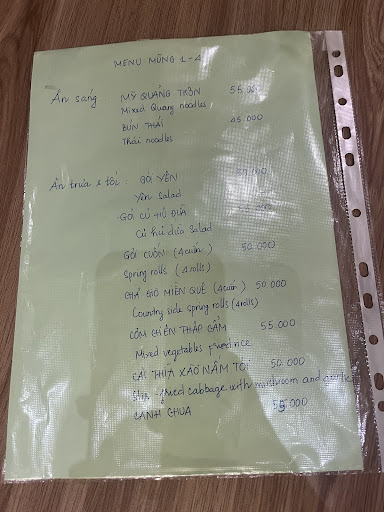 MENU MÙNG 1-4
Ăn sáng MỲ QUẢNG TRỘN 55.000
Mixed Quang noodles
BÚN THÁI 45.000
Thái noodles
Ăn trưa & tối: GỎI YẾN
Yến Salad
GỎI CỦ HỦ DỪA
Củ hủ dừa Salad
GỎI CUỐN (4 cuốn) 50.000
Spring rolls (4 rolls)
CHẢ GIÒ MIỀN QUÊ (4 cuốn) 50.000
Country side spring rolls (4 rolls)
CƠM CHIÊN THẬP CẨM 55.000
Mixed vegetables fried rice
CẢI THÌA XÀO NẤM TỎI 50.000
fried cabbage with mushroom and garlic
CANH CHUA 55.000